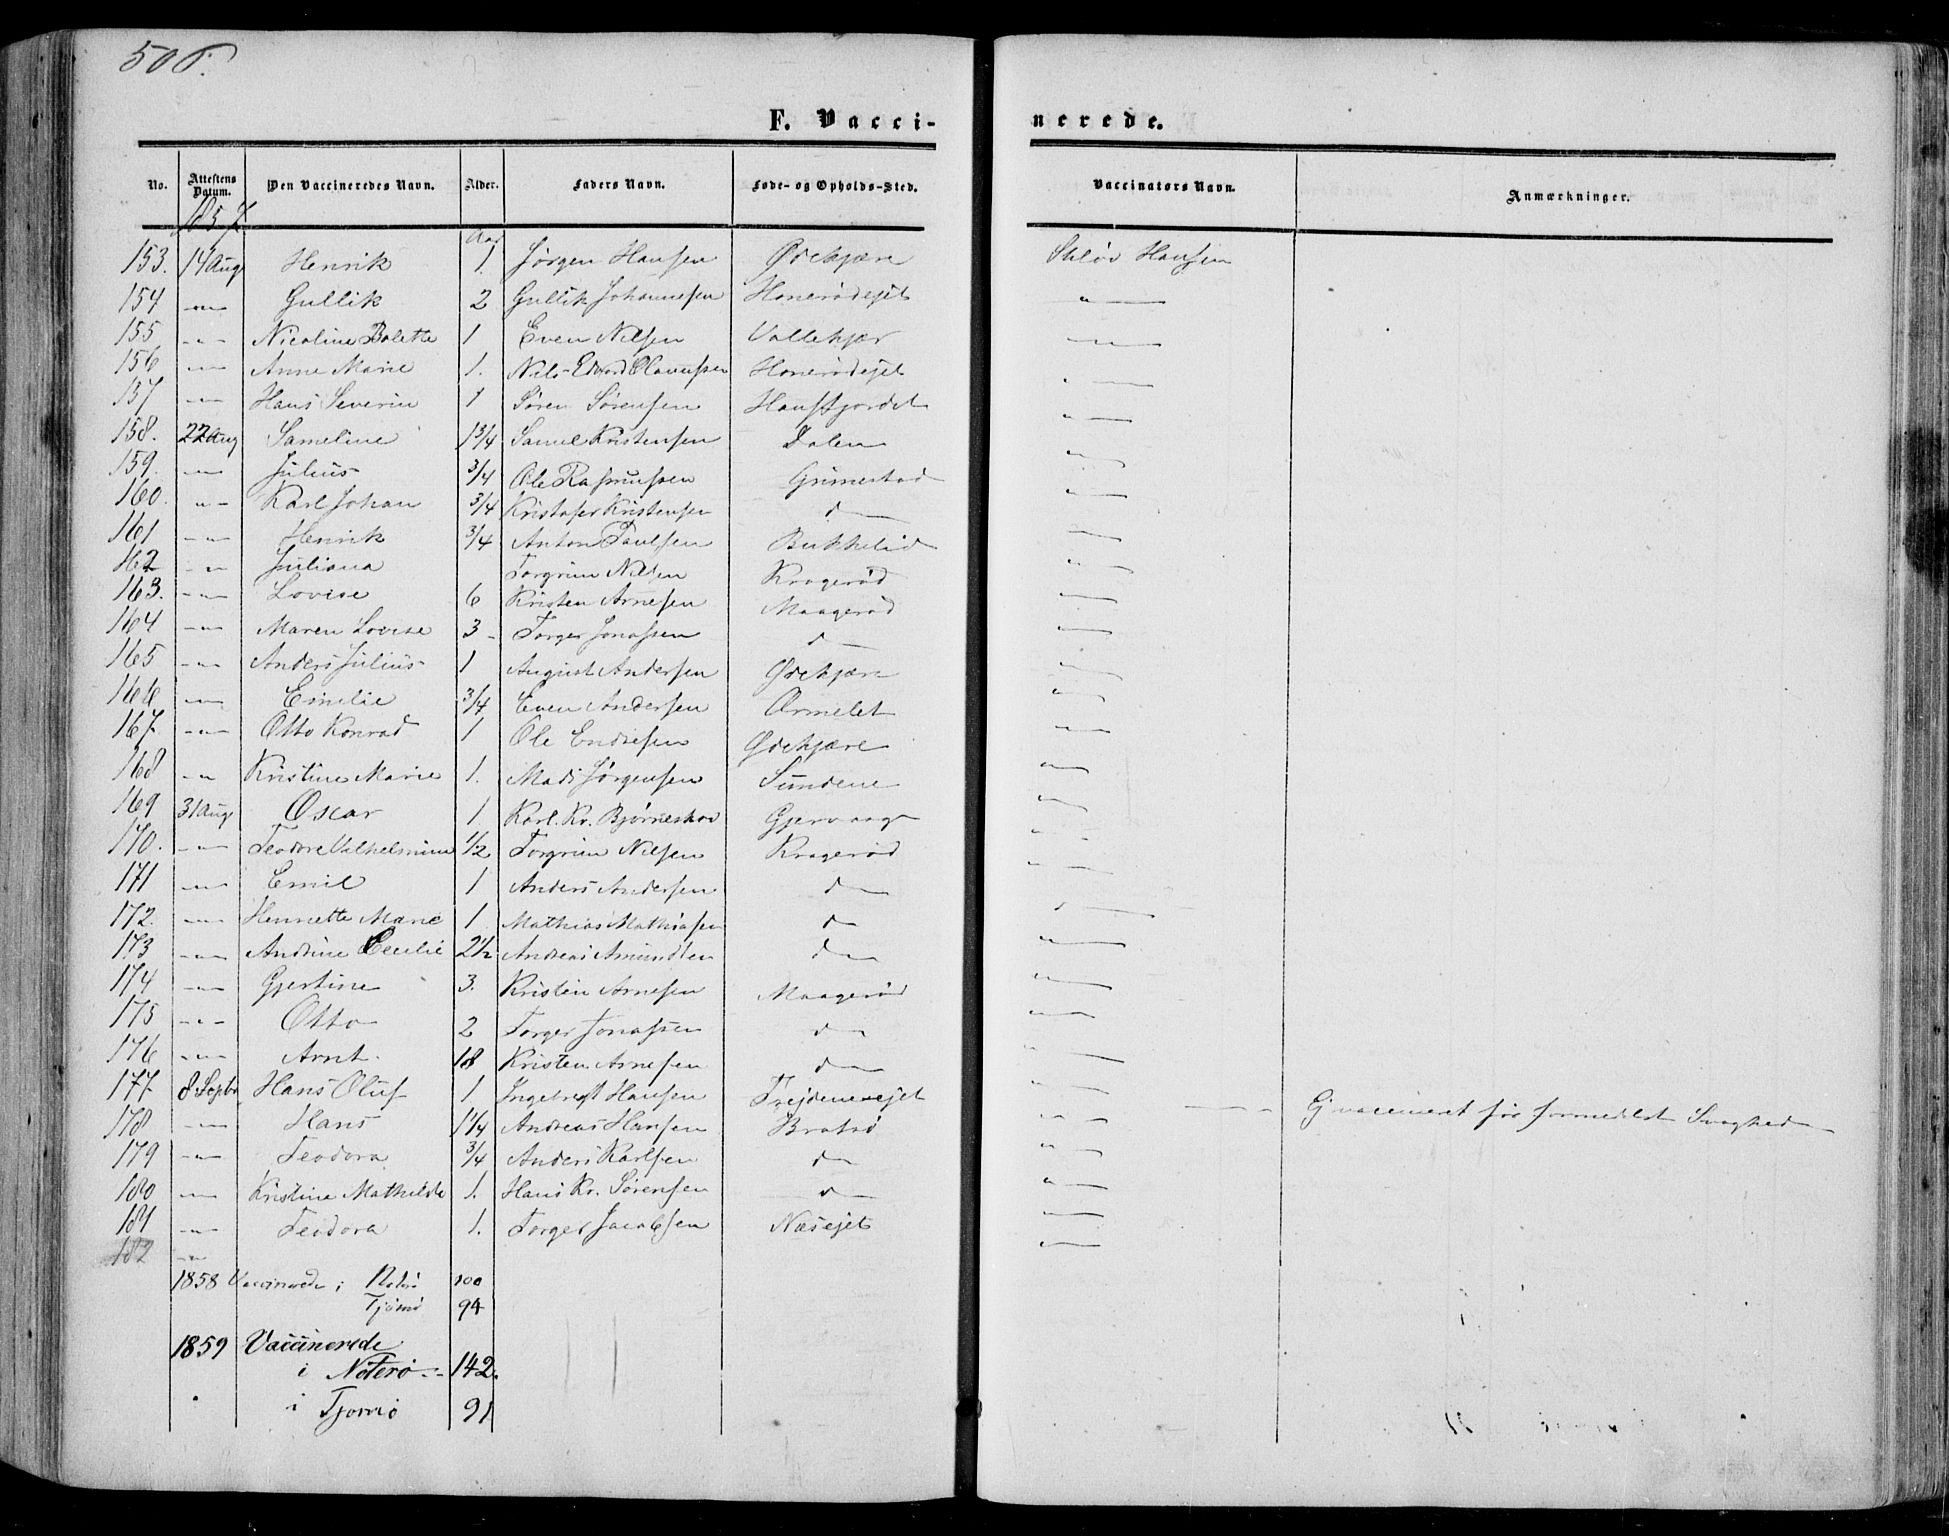 506.
F. Vaccinerede.
No. Attestens Datum. Den Vaccineredes Navn. Alder. Faders Navn. Føde- og Opholds-Sted. Vaccinators Navn. Anmærkninger.
1857
Aar
153. 14 Aug Henrik 1. Jørgen Hansen Ødekjære Hansen
154 -"- Gullik 2 Gullik Johannesen Honerødejet "
155 -"- Nicoline Bolette 1 Even Nilsen Vallekjær "
156 -"- Anne Marie 1. Nils Edvard Olavussen Honerødejet "
157 -"- Hans Severin 1 Søren Sørensen Haufjordet "
158. 22 Aug Sameline 1 3/4 Samuel Kristensen Dalen "
159. -"- Julius 3/4 Ole Rasmussen Grimestad "
160. -"- Karl Johan 3/4 Kristofer Kristensen d "
161 -"- Henrik 3/4 Anton Paulsen Bekkelid "
162 -"- Juliana Torgrim Nilsen Kragerød "
163. -"- Lovise 6 Kristen Arnesen Maagerød "
164 -"- Maren Lovise 3 - Torger Jonassen d "
165 -"- Anders Julius 1 August Andersen Ødekjære "
166 -"- Emelie 3/4 Even Andersen Ormelet "
167 -"- Otto Konrad 1 Ole Endresen Ødekjære "
168 -"- Kristine Marie 1. Mads Jørgensen Sundene "
169 31 Aug Oscar 1. Karl. Kr. Bjørneskov Gjervaag "
170. -"- Teodore Vilhelmine 1/2 Torgrim Nilsen Kragerød "
171 -"- Emil 1 Anders Andersen d "
172. -"- Henriette Marie 1. Mathias Mathiasen d "
173 -"- Andrine Cecilie 2 1/2 Andreas Amundsen d "
174 -"- Gjertine 3. Kristen Arnesen Maagerød "
175 -"- Otto 2 Torger Jonassen d "
176 -"- Arnt. 18 Kristen Arnesen d "
177 8 Septbr Hans Oluf 1 Ingebregt Hansen Trejdeneejet "
178 -"- Hans 1 1/4 Andreas Hansen Bratsø " Ej vaccineret før formedelst Svaghed
179 -"- Teodora 3/4 Anders Karlsen d "
180 -"- Kristine Mathilde 1. Hans Kr. Sørensen d "
181 -"- Teodora 1. Torger Jacobsen Næsejet "
182 -"-
1858 Vaccinerede i Noterø 100
Tjømø 94
1859 Vaccinerede
i Noterø -- 142.
" i Tjømø 91